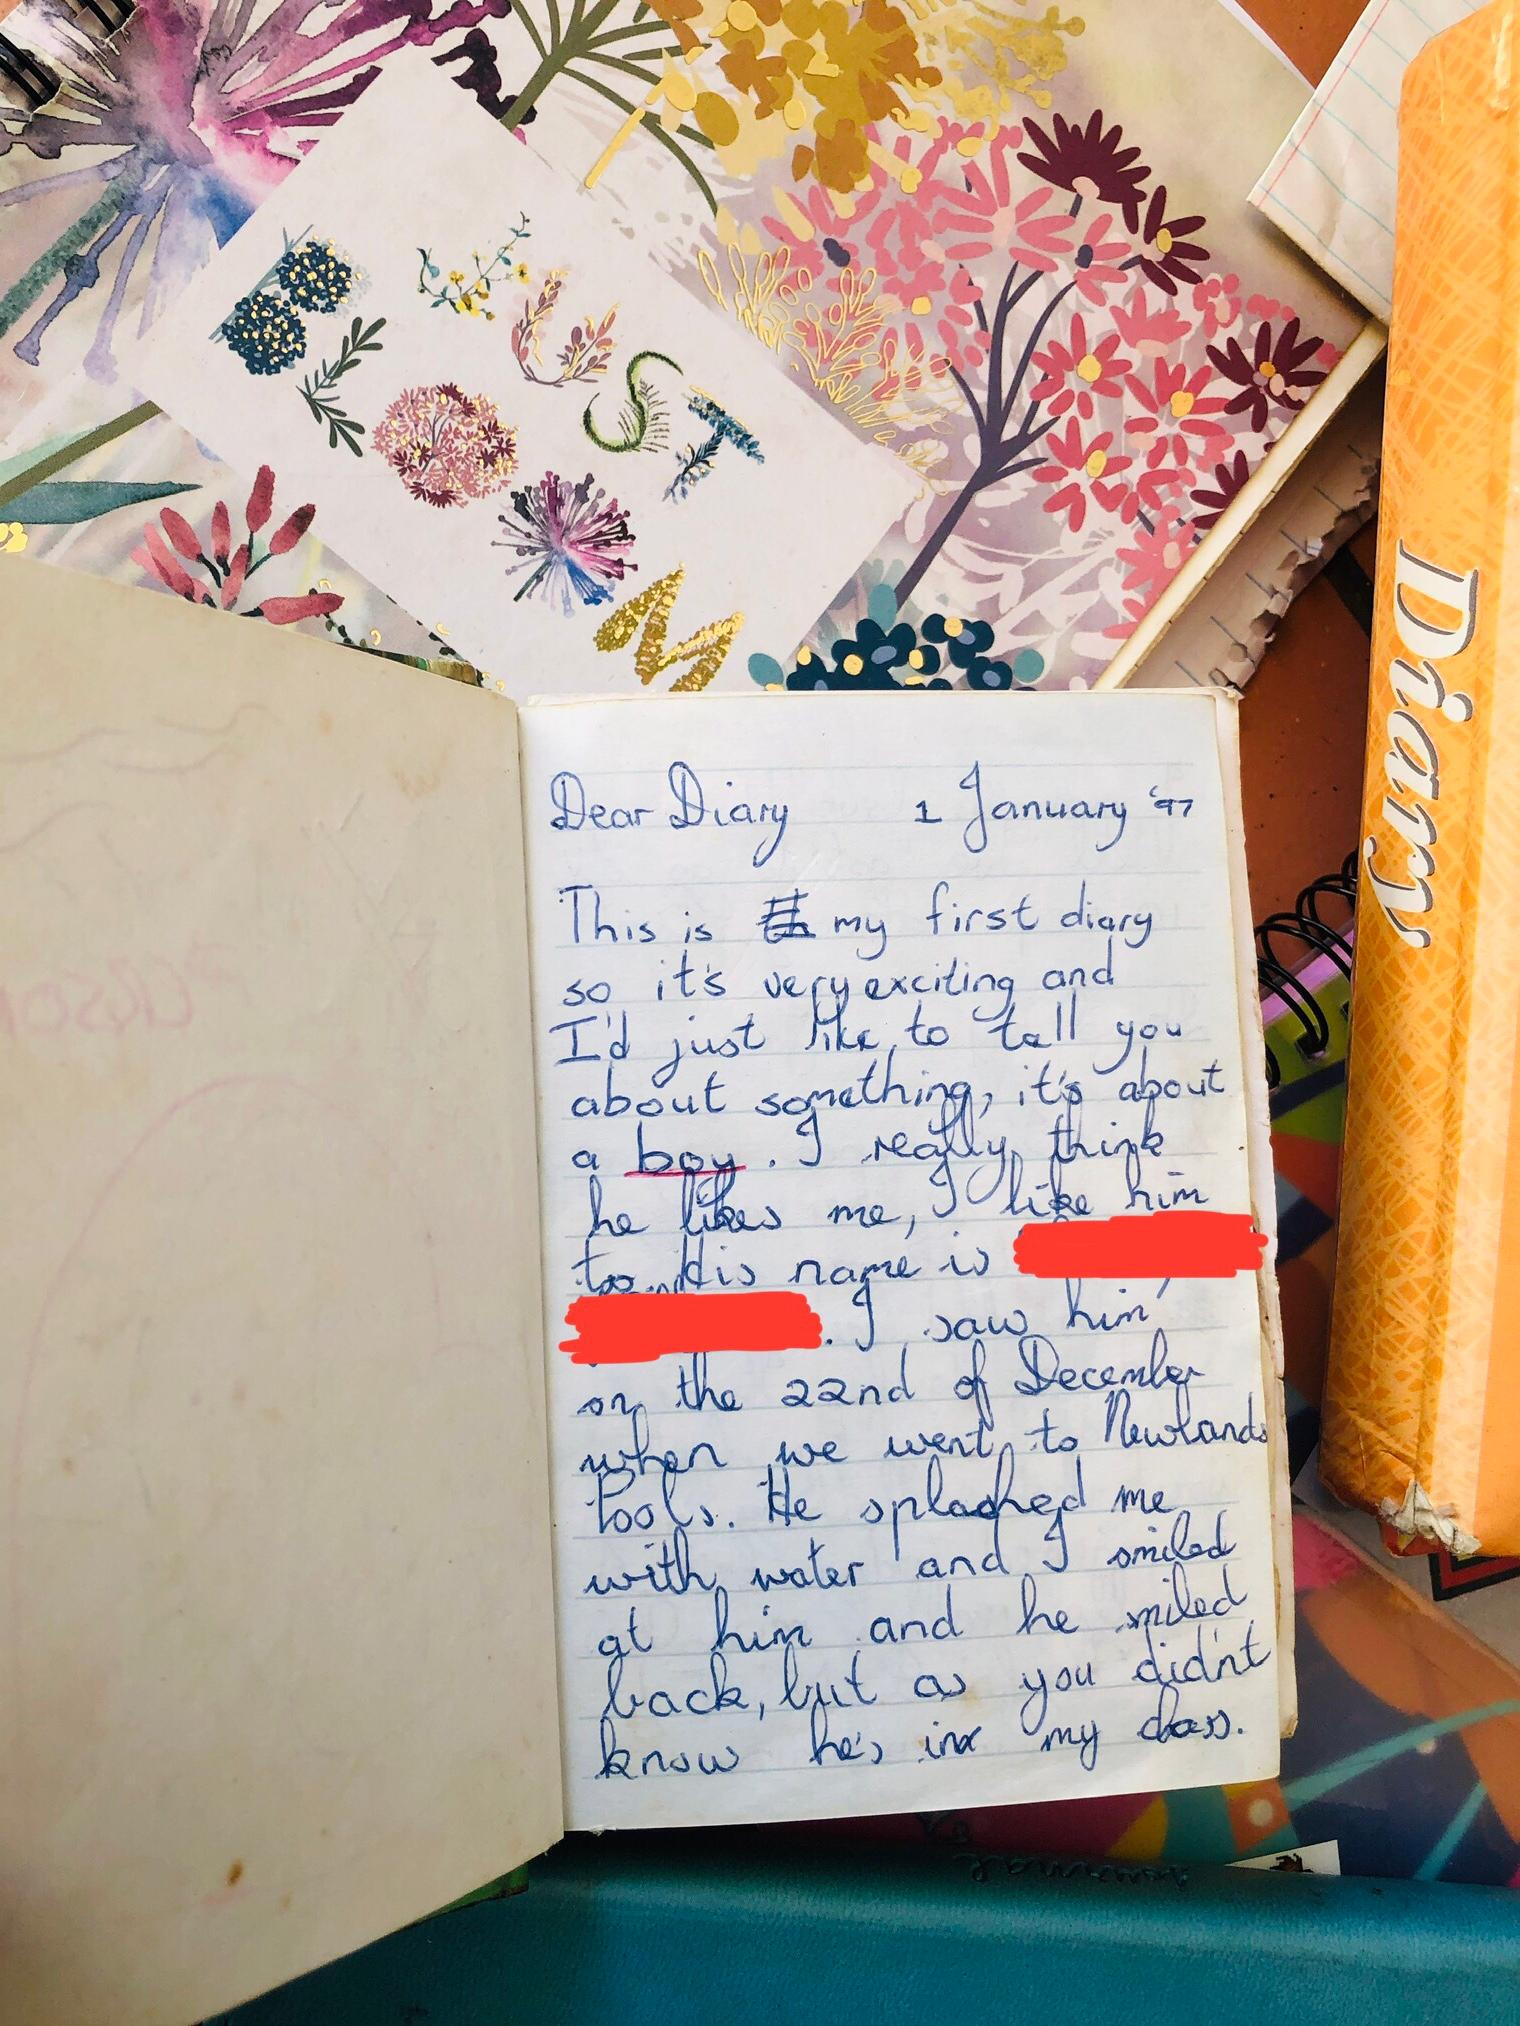 JUST
BLOOM
Diary
Dear Diary 1 January '97
This is my first diary
so it's very exciting and
I'd just like to tell you
about something, it's about
a boy. I really think
he likes me, I like him
too. His name is
. I saw him
on the 22nd of December
when we went to Newlands
Pools. He splashed me
with water and I smiled
at him and he smiled
back, but as you didn't
know he's in my class.
Journal